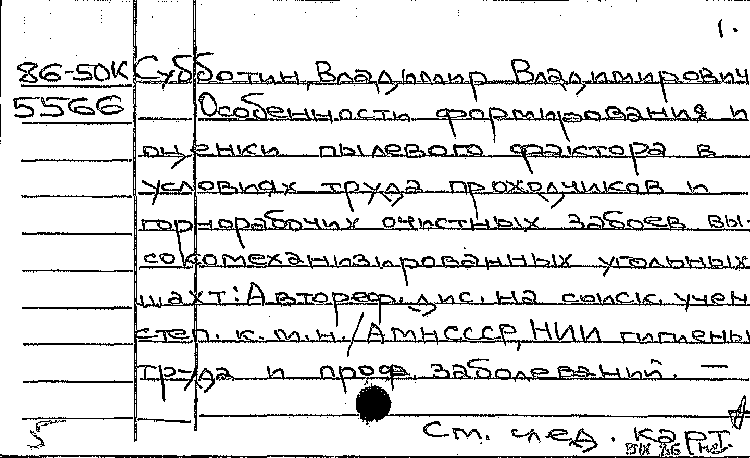 1.
86-50К Субботин, Владимир Владимирович
5566 Особенности формирования и
оценки пылевого фактора в
условиях труда проходчиков и
горнорабочих очистных забоев вы-
сокомеханизированных угольных
шахт: Автореф. дис. на соиск. учен
степ. к. м. н. / АМН СССР, НИИ гигиены
труда и проф. заболеваний. —
См. след. карт.